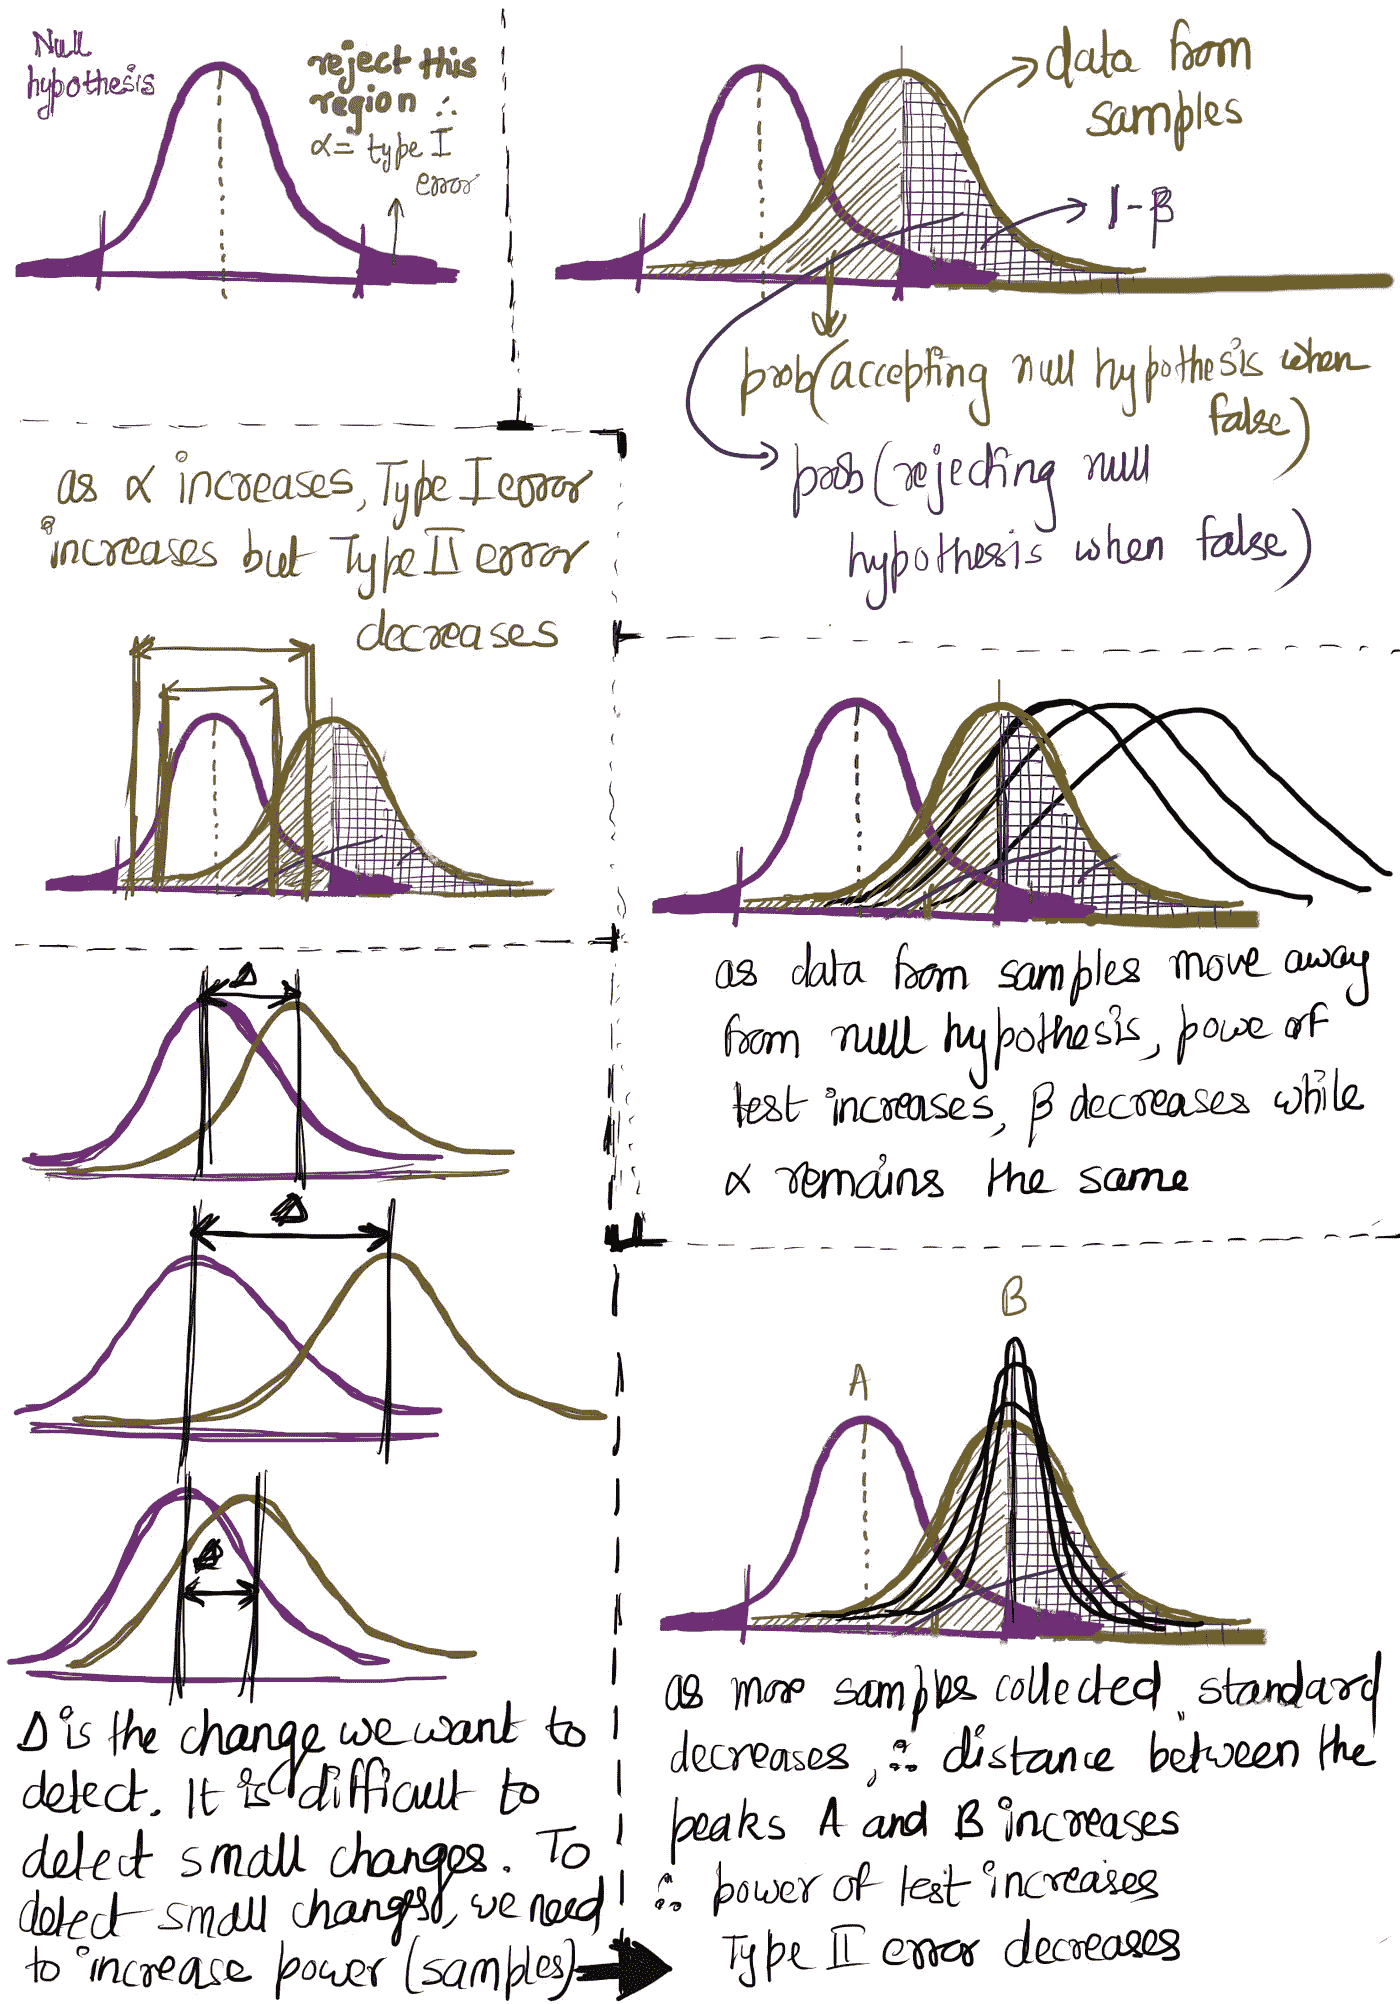 Null
hypothesis
reject this
region ∴
α = type I
error
data from
samples
1-β
prob(accepting null hypothesis when
false)
prob(rejecting null
hypothesis when false)
as α increases, Type I error
increases but Type II error
decreases
as data from samples move away
from null hypothesis, powe of
test increases, β decreases while
α remains the same
Δ
Δ
Δ
Δ is the change we want to
detect. It is difficult to
detect small changes. To
detect small changes, we need
to increase power (samples)
A
B
as more samples collected, standard
decreases, ∴ distance between the
peaks A and B increases
∴ power of test increases
Type II error decreases